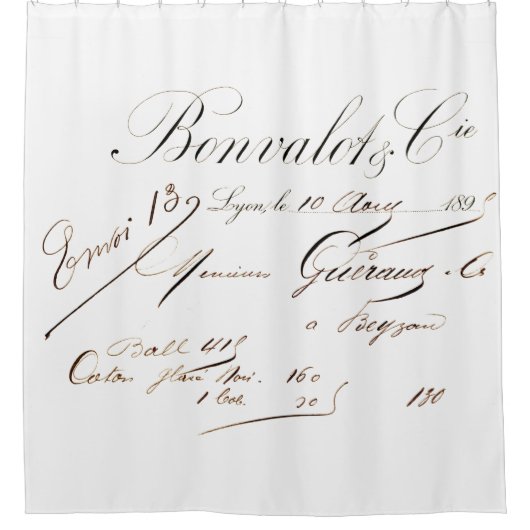 Bonvalot & Cie
Envoi 139 Lyon, le 10 Aout 1895
Messieurs Guéraud & Cie
a
Ball 415
Coton glacé Noir. 160
1 Cob. 30 130